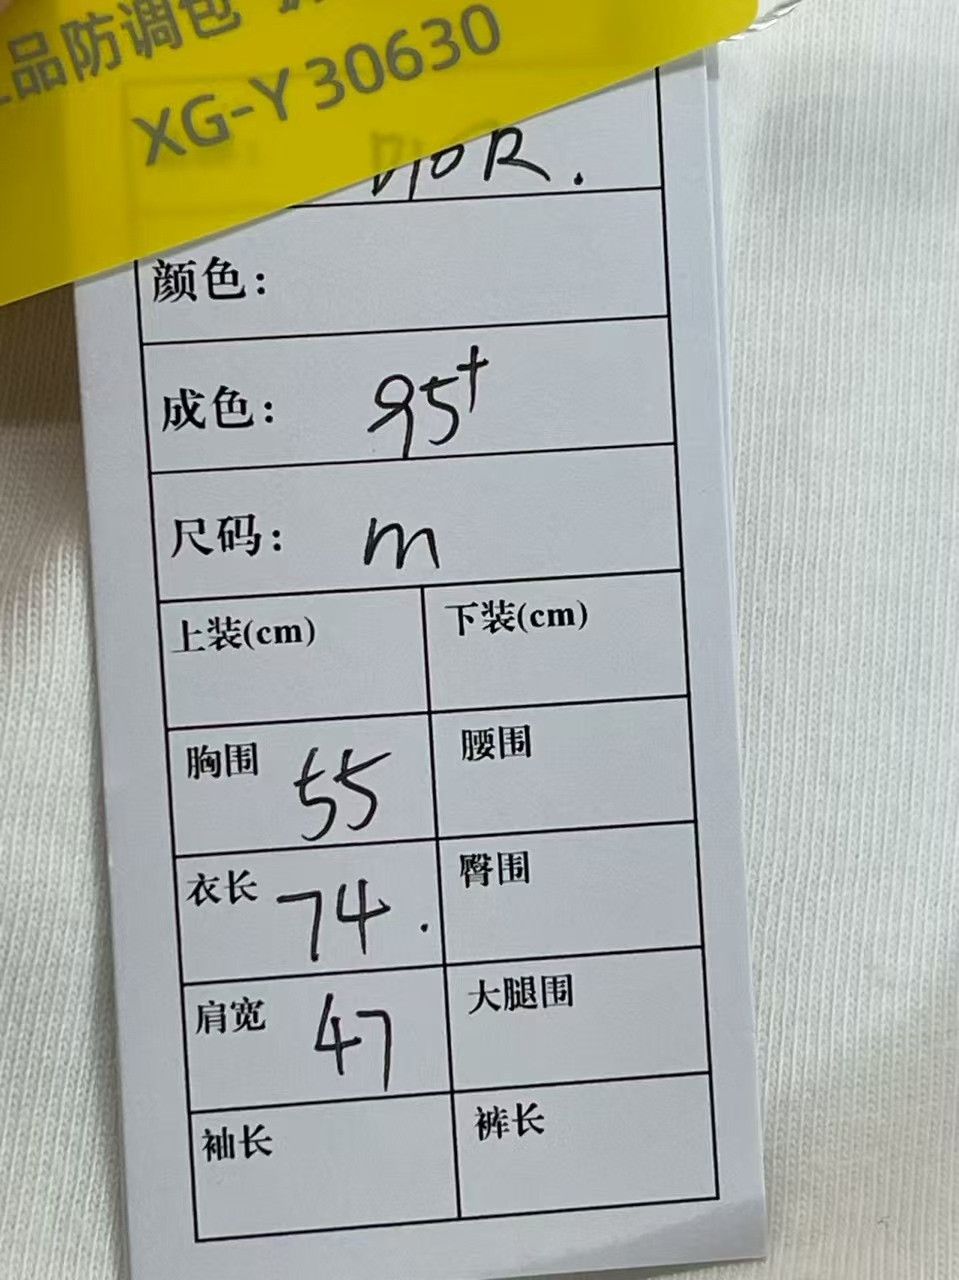 品防调包
XG-Y30630
DIOR.
颜色：
成色： 95+
尺码： m
上装(cm) 下装(cm)
胸围 55 腰围
衣长 74. 臀围
肩宽 47 大腿围
袖长 裤长